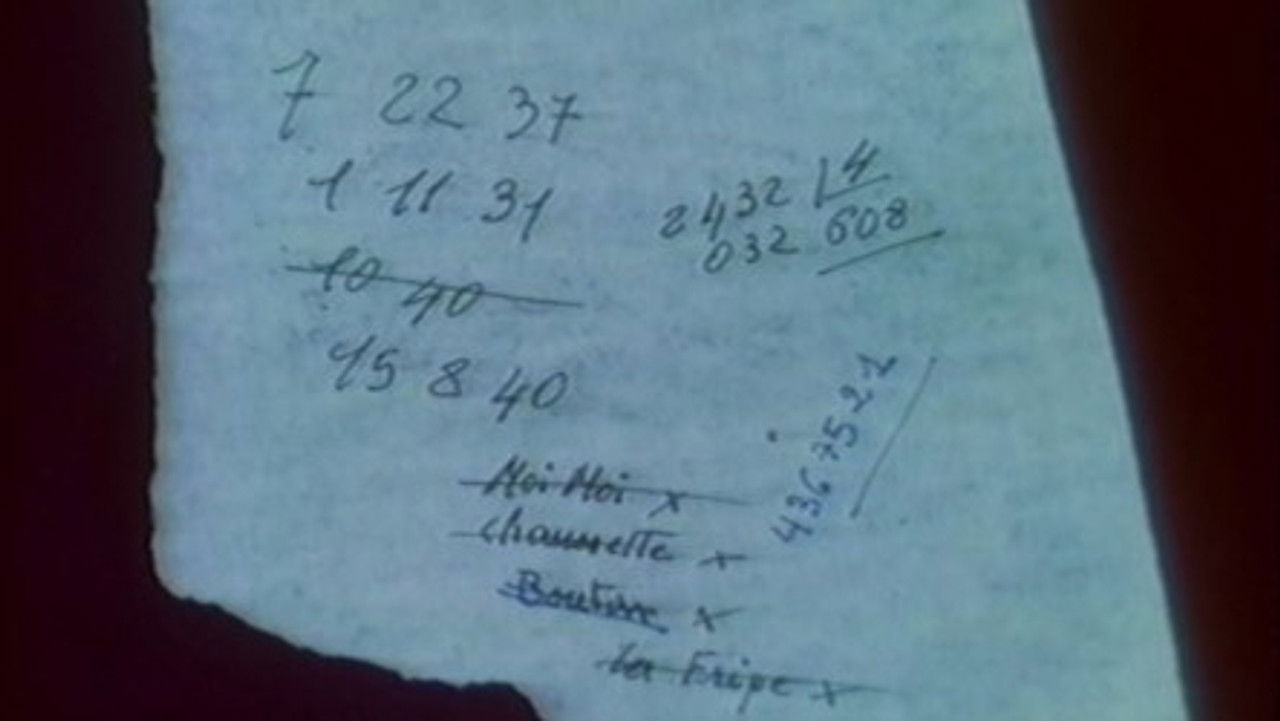 7 22 37
1 11 31
2432 4
032 608
10 40
15 8 40
436 75-22
Moi Moi x
Chaussette x
Boutine x
La Fripe x